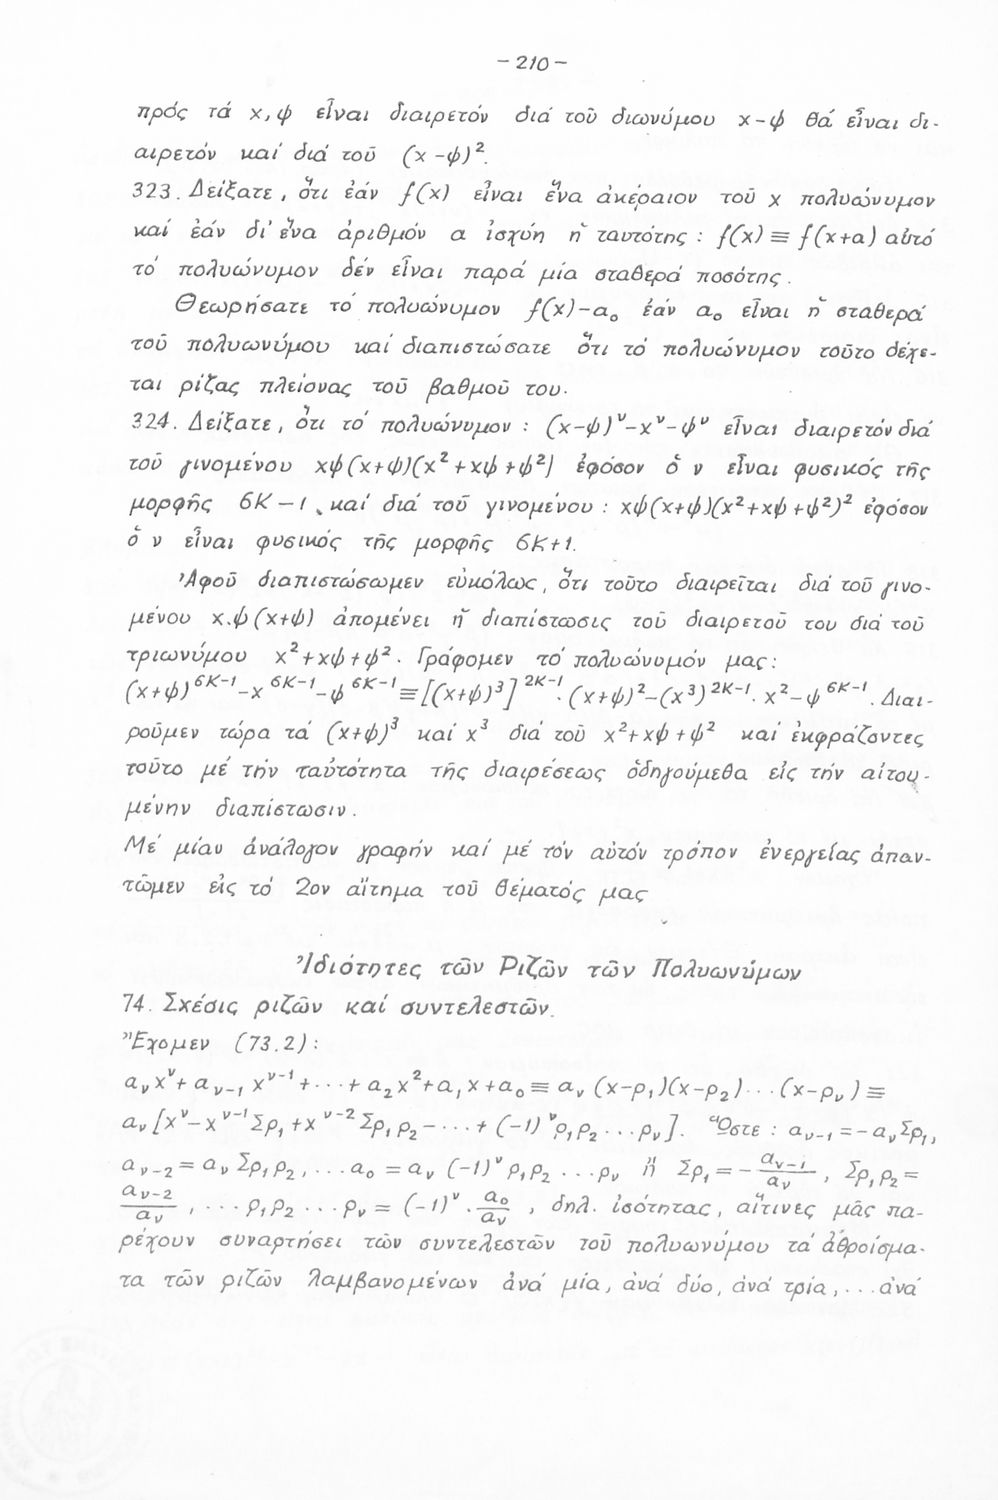 - 210 -
πρός τά x, ψ εἶναι διαιρετόν διά τοῦ διωνύμου x-ψ θά εἶναι δι-
αιρετόν καί διά τοῦ (x-ψ)².
323. Δείξατε, ὅτι ἐάν f(x) εἶναι ἕνα ἀκέραιον τοῦ x πολυώνυμον
καί ἐάν δι' ἕνα ἀριθμόν α ἰσχύη ἡ ταυτότης : f(x) ≡ f(x+α) αὐτό
τό πολυώνυμον δέν εἶναι παρά μία σταθερά ποσότης.
Θεωρήσατε τό πολυώνυμον f(x)-α₀ ἐάν α₀ εἶναι ἡ σταθερά
τοῦ πολυωνύμου καί διαπιστώσατε ὅτι τό πολυώνυμον τοῦτο δέχε-
ται ρίζας πλείονας τοῦ βαθμοῦ του.
324. Δείξατε, ὅτι τό πολυώνυμον : (x-ψ)^ν-x^ν-ψ^ν εἶναι διαιρετόν διά
τοῦ γινομένου xψ(x+ψ)(x²+xψ+ψ²) ἐφόσον ὁ ν εἶναι φυσικός τῆς
μορφῆς 6Κ-1, καί διά τοῦ γινομένου : xψ(x+ψ)(x²+xψ+ψ²)² ἐφόσον
ὁ ν εἶναι φυσικός τῆς μορφῆς 6Κ+1.
Ἀφοῦ διαπιστώσωμεν εὐκόλως, ὅτι τοῦτο διαιρεῖται διά τοῦ γινο-
μένου x.ψ(x+ψ) ἀπομένει ἡ διαπίστωσις τοῦ διαιρετοῦ του διά τοῦ
τριωνύμου x²+xψ+ψ². Γράφομεν τό πολυώνυμόν μας:
(x+ψ)^{6Κ-1}-x^{6Κ-1}-ψ^{6Κ-1}≡[(x+ψ)³]^{2Κ-1}·(x+ψ)²-(x³)^{2Κ-1}·x²-ψ^{6Κ-1}. Διαι-
ροῦμεν τώρα τά (x+ψ)³ καί x³ διά τοῦ x²+xψ+ψ² καί ἐκφράζοντες
τοῦτο μέ τήν ταὐτότητα τῆς διαιρέσεως ὁδηγούμεθα εἰς τήν αἰτου-
μένην διαπίστωσιν.
Μέ μίαν ἀνάλογον γραφήν καί μέ τόν αὐτόν τρόπον ἐνεργείας ἀπαν-
τῶμεν εἰς τό 2ον αἴτημα τοῦ θέματός μας
Ἰδιότητες τῶν Ριζῶν τῶν Πολυωνύμων
74. Σχέσις ριζῶν καί συντελεστῶν.
Ἔχομεν (73.2):
α_ν x^ν + α_{ν-1} x^{ν-1} + ··· + α₂x² + α₁x + α₀ ≡ α_ν (x-ρ₁)(x-ρ₂)...(x-ρ_ν) ≡
α_ν [x^ν - x^{ν-1} Σρ₁ + x^{ν-2} Σρ₁ρ₂ - ··· + (-1)^ν ρ₁ρ₂...ρ_ν]. Ὥστε : α_{ν-1} = -α_ν Σρ₁,
α_{ν-2} = α_ν Σρ₁ρ₂, ... α₀ = α_ν (-1)^ν ρ₁ρ₂...ρ_ν ἤ Σρ₁ = - α_{ν-1}/α_ν , Σρ₁ρ₂ =
α_{ν-2}/α_ν , ··· ρ₁ρ₂...ρ_ν = (-1)^ν · α₀/α_ν , δηλ. ἰσότητας, αἵτινες μᾶς πα-
ρέχουν συναρτήσει τῶν συντελεστῶν τοῦ πολυωνύμου τά ἀθροίσμα-
τα τῶν ριζῶν λαμβανομένων ἀνά μία, ἀνά δύο, ἀνά τρία, ... ἀνά